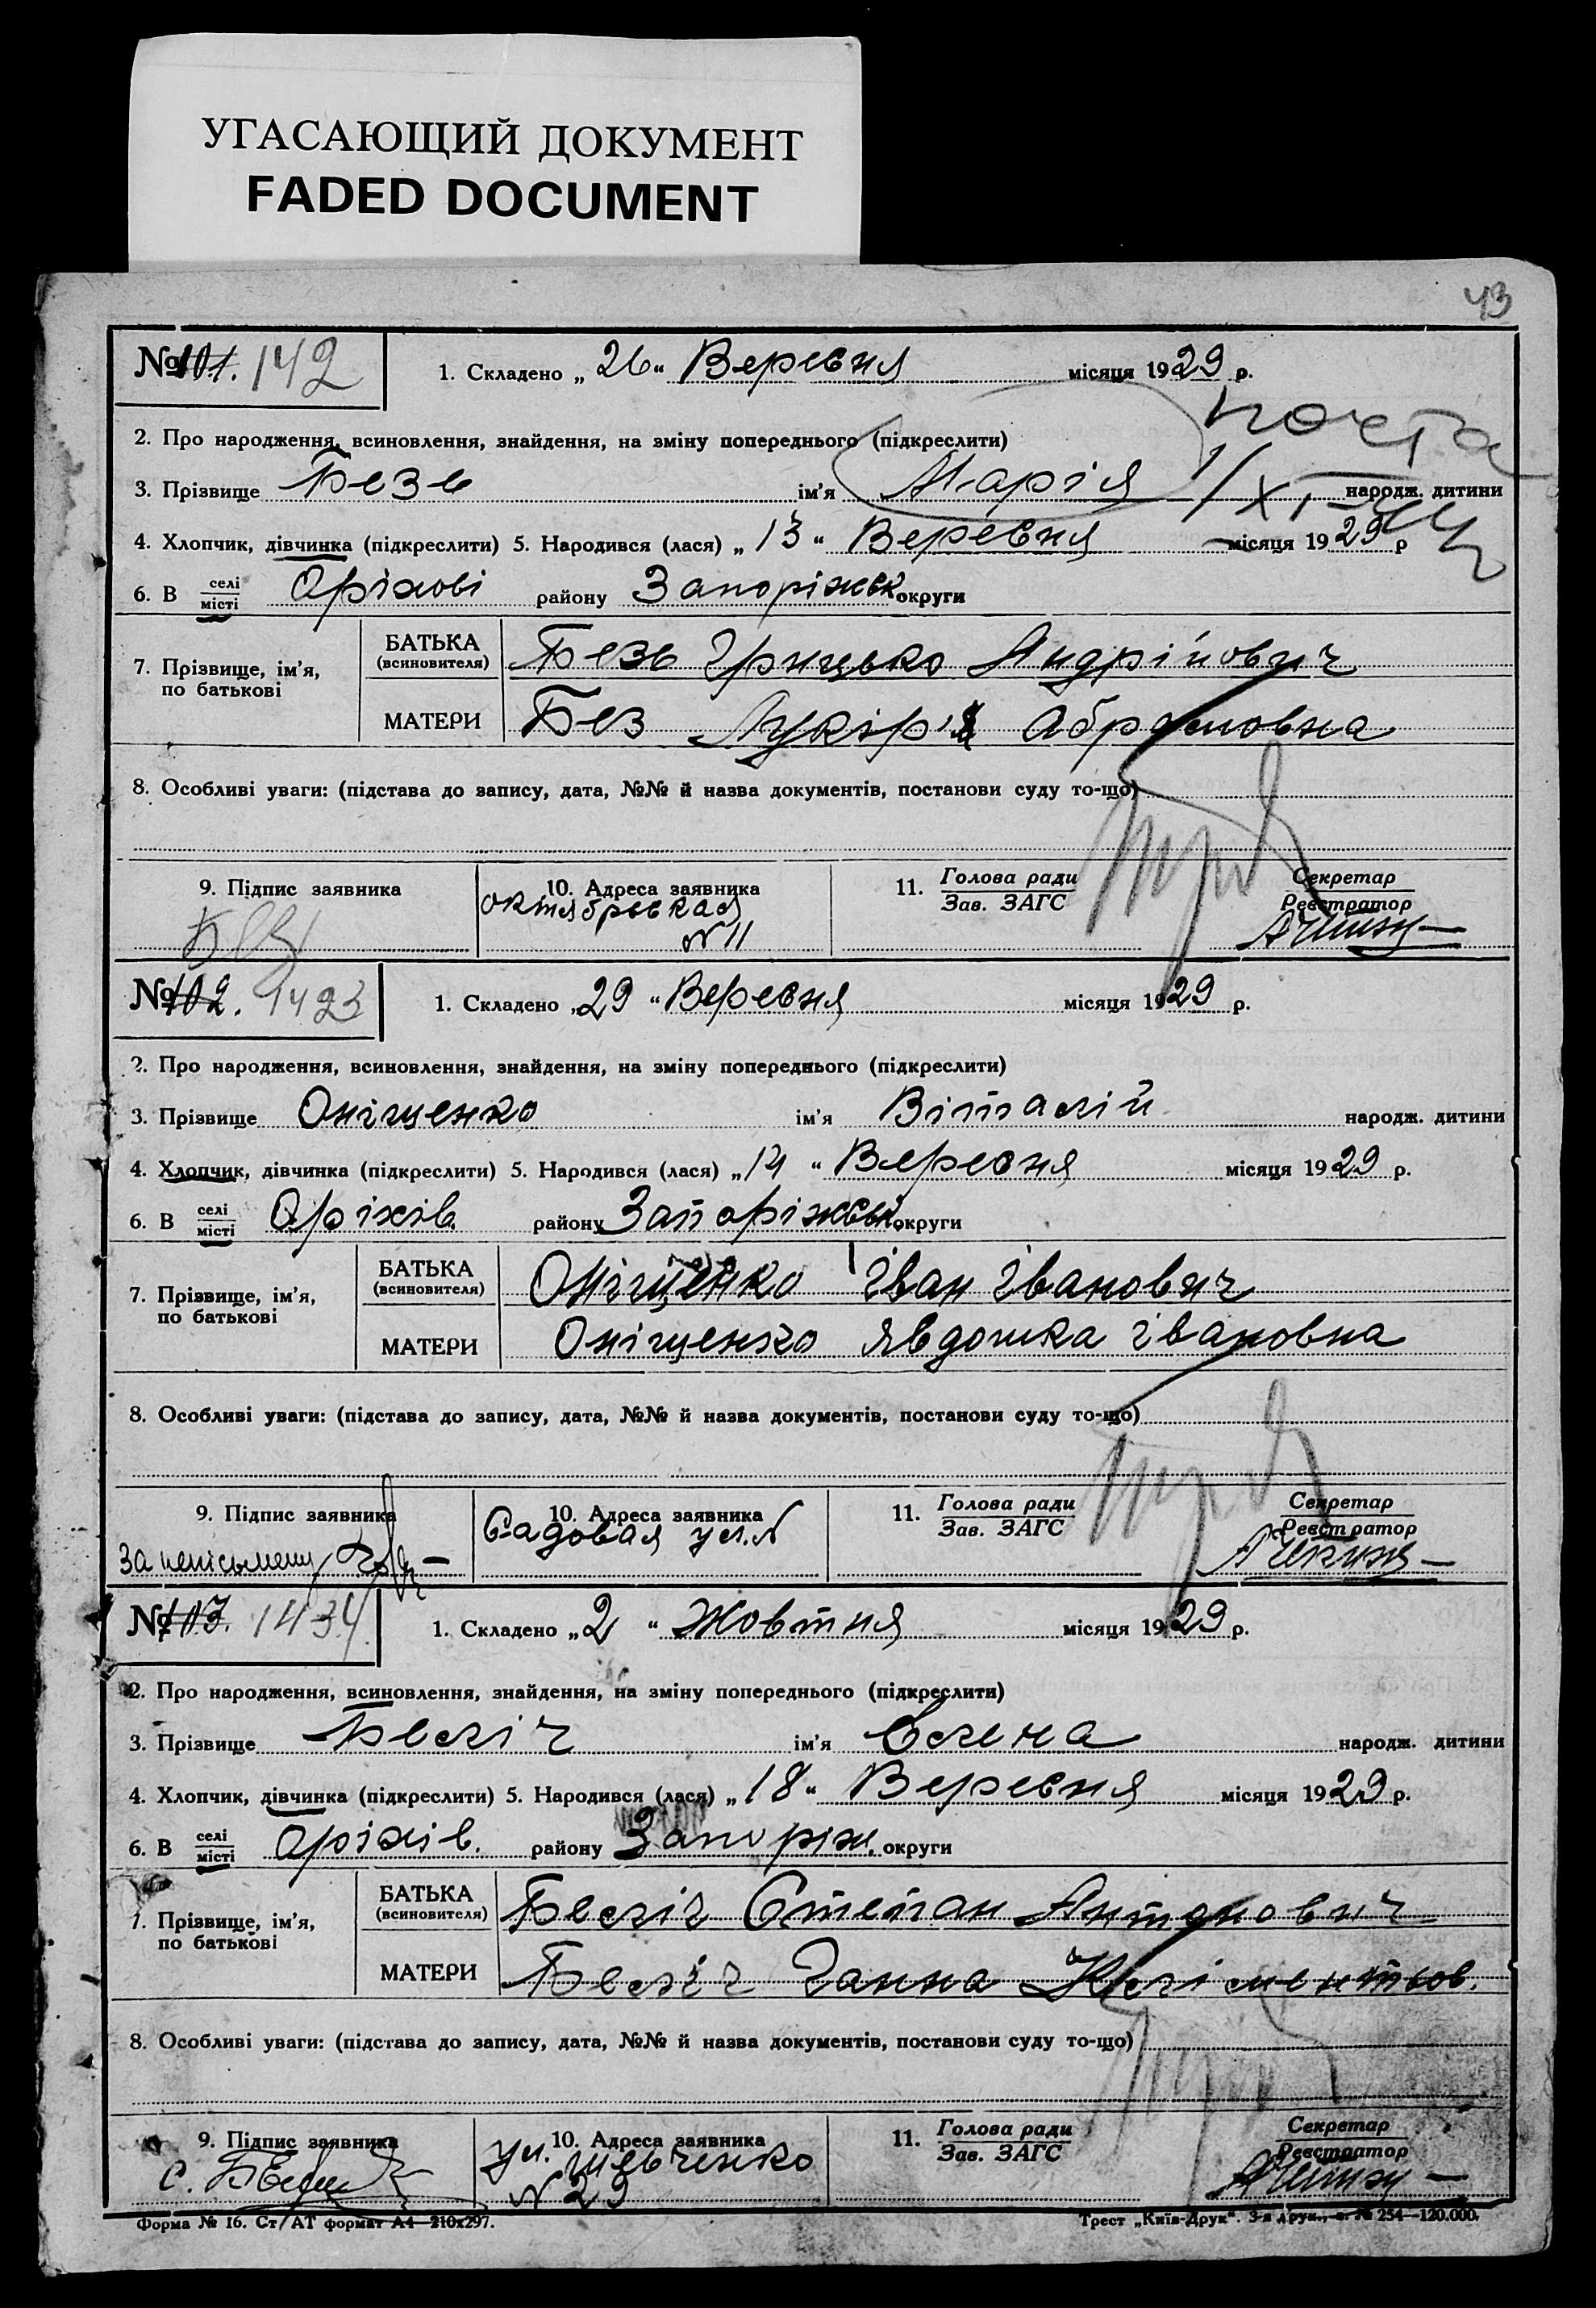 УГАСАЮЩИЙ ДОКУМЕНТ
FADED DOCUMENT
43
№ 101. 142
1. Складено „ 26 “ Вересня місяця 1929 р.
почта
2. Про народження, всиновлення, знайдення, на зміну попереднього (підкреслити)
3. Прізвище Безь ім'я Марія народж. дитини
1/XI-44
4. Хлопчик, дівчинка (підкреслити) 5. Народився (лася) „ 13 “ Вересня місяця 1929 р
6. В селі/місті Оріхові району Запоріжськ округи
7. Прізвище, ім'я, по батькові
БАТЬКА (всиновителя) Безь Грицько Андрійович
МАТЕРИ Без Лукіря Абрамовна
8. Особливі уваги: (підстава до запису, дата, №№ й назва документів, постанови суду то-що)
9. Підпис заявника
Без
10. Адреса заявника
октябрьская
№ 11
11. Голова ради / Зав. ЗАГС
Секретар / Реєстратор
№ 102. 1423
1. Складено „ 29 “ Вересня місяця 1929 р.
2. Про народження, всиновлення, знайдення, на зміну попереднього (підкреслити)
3. Прізвище Оніщенко ім'я Віталій народж. дитини
4. Хлопчик, дівчинка (підкреслити) 5. Народився (лася) „ 14 “ Вересня місяця 1929 р.
6. В селі/місті Оріхів району Запоріжськ округи
7. Прізвище, ім'я, по батькові
БАТЬКА (всиновителя) Оніщенко Іван Іванович
МАТЕРИ Оніщенко Явдошка Івановна
8. Особливі уваги: (підстава до запису, дата, №№ й назва документів, постанови суду то-що)
9. Підпис заявника
10. Адреса заявника
Садовая ул. №
11. Голова ради / Зав. ЗАГС
Секретар / Реєстратор
№ 103. 1434
1. Складено „ 2 “ Жовтня місяця 1929 р.
2. Про народження, всиновлення, знайдення, на зміну попереднього (підкреслити)
3. Прізвище Беліч ім'я Єлена народж. дитини
4. Хлопчик, дівчинка (підкреслити) 5. Народився (лася) „ 18 “ Вересня місяця 1929 р.
6. В селі/місті Оріхів. району Запоріж. округи
7. Прізвище, ім'я, по батькові
БАТЬКА (всиновителя) Беліч Степан Антонович
МАТЕРИ Беліч Ганна Кліментьов.
8. Особливі уваги: (підстава до запису, дата, №№ й назва документів, постанови суду то-що)
9. Підпис заявника
10. Адреса заявника
ул. Шевченко
№ 29
11. Голова ради / Зав. ЗАГС
Секретар / Реєстратор
Форма № 16. Ст/АТ формат А4—210x297.
Трест „Київ-Друк“. 3-я друк., з. № 254—120.000.